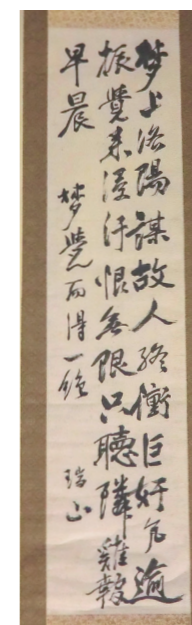 夢上洛陽謀故人終衝巨奸気逾
振覚来浸汗恨無限只聴隣雞報
早晨　夢覚而得一絶
瑞山